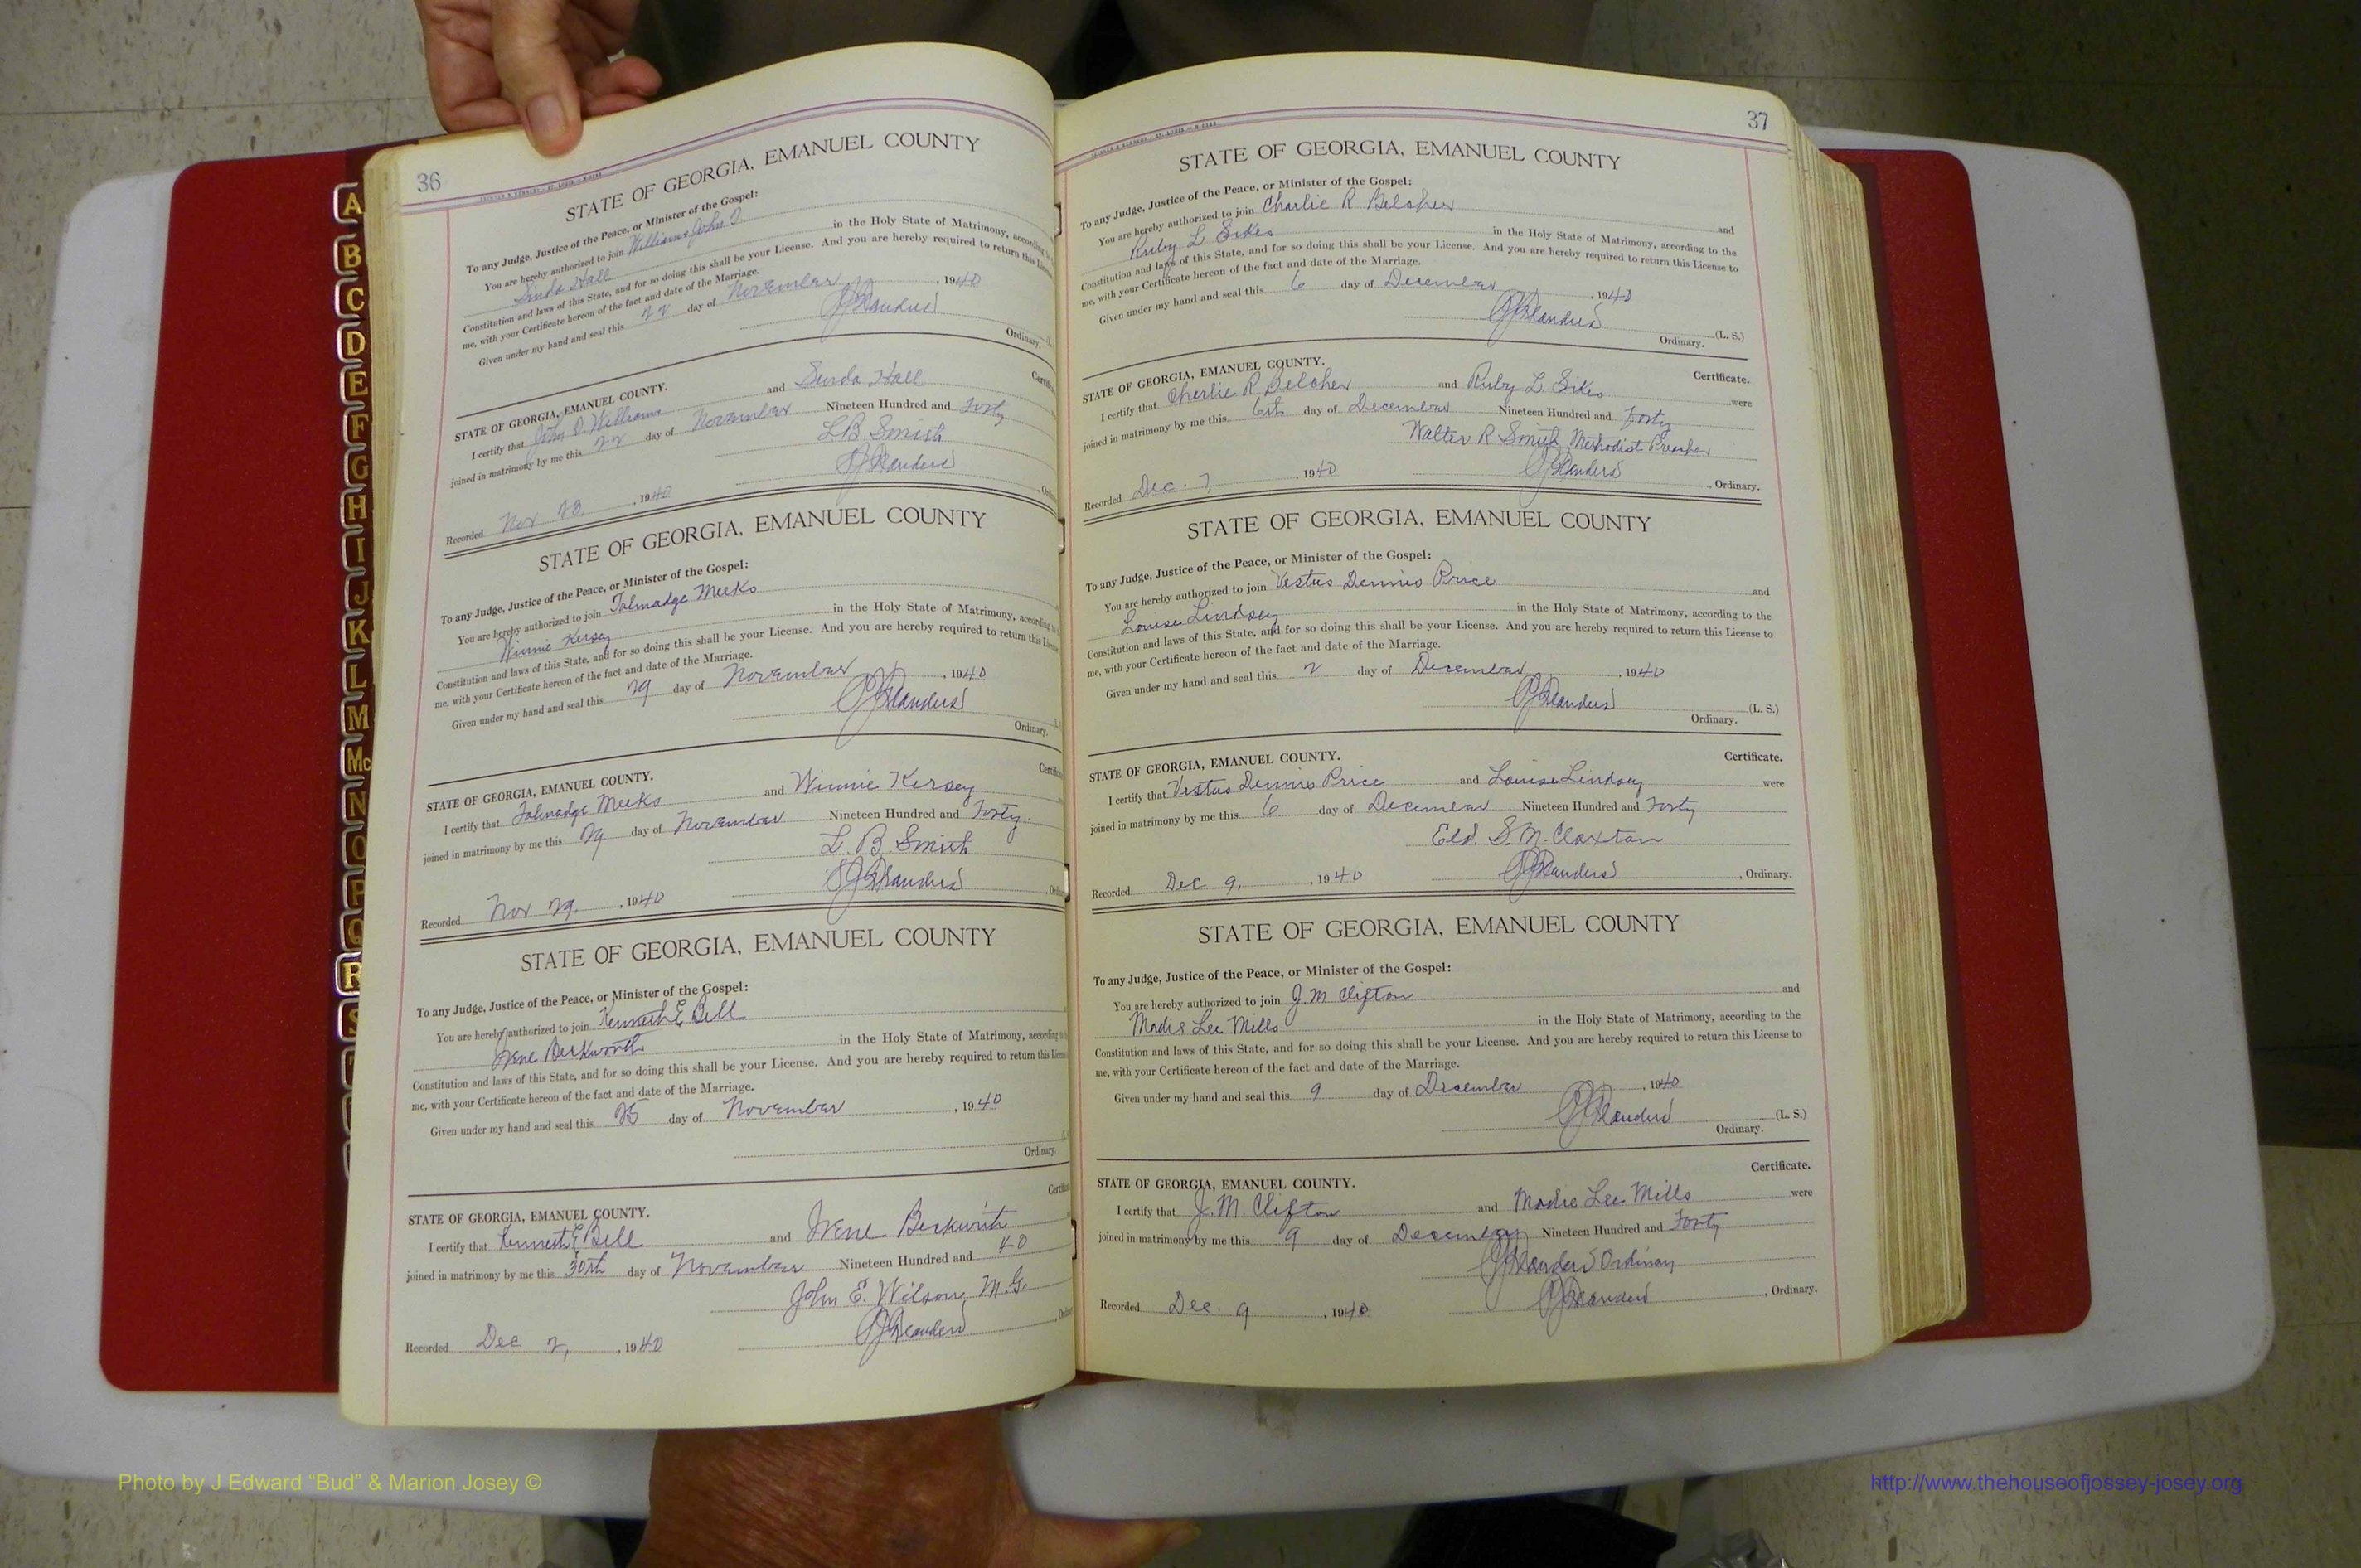 36
STATE OF GEORGIA, EMANUEL COUNTY
To any Judge, Justice of the Peace, or Minister of the Gospel:
You are hereby authorized to join Williams John D
Hall in the Holy State of Matrimony, according
Constitution and laws of this State, and for so doing this shall be your License. And you are hereby required to return this
me, with your Certificate hereon of the fact and date of the Marriage.
Given under my hand and seal this 22 day of November, 1940
Ordinary.
STATE OF GEORGIA, EMANUEL COUNTY.
I certify that John D. Williams and Hall
joined in matrimony by me this 22 day of November Nineteen Hundred and Forty
L B Smith
Recorded Nov 23, 1940
STATE OF GEORGIA, EMANUEL COUNTY
To any Judge, Justice of the Peace, or Minister of the Gospel:
You are hereby authorized to join Talmadge Meeks
Winnie Kersey in the Holy State of Matrimony, according
Constitution and laws of this State, and for so doing this shall be your License. And you are hereby required to return this
me, with your Certificate hereon of the fact and date of the Marriage.
Given under my hand and seal this 29 day of November, 1940
Ordinary.
STATE OF GEORGIA, EMANUEL COUNTY.
I certify that Talmadge Meeks and Winnie Kersey
joined in matrimony by me this 29 day of November Nineteen Hundred and Forty.
L. B. Smith
Recorded Nov 29, 1940
STATE OF GEORGIA, EMANUEL COUNTY
To any Judge, Justice of the Peace, or Minister of the Gospel:
You are hereby authorized to join Kenneth E Bell
Irene Beckworth in the Holy State of Matrimony, according
Constitution and laws of this State, and for so doing this shall be your License. And you are hereby required to return this
me, with your Certificate hereon of the fact and date of the Marriage.
Given under my hand and seal this 25 day of November, 1940
Ordinary.
STATE OF GEORGIA, EMANUEL COUNTY.
I certify that Kenneth E Bell and Irene Beckwith
joined in matrimony by me this 30th day of November Nineteen Hundred and 40
John E. Wilson, M.G.
Recorded Dec 2, 1940
37
STATE OF GEORGIA, EMANUEL COUNTY
To any Judge, Justice of the Peace, or Minister of the Gospel:
You are hereby authorized to join Charlie R Belcher and
Ruby L Sikes in the Holy State of Matrimony, according to the
Constitution and laws of this State, and for so doing this shall be your License. And you are hereby required to return this License to
me, with your Certificate hereon of the fact and date of the Marriage.
Given under my hand and seal this 6 day of December, 1940
(L. S.)
Ordinary.
STATE OF GEORGIA, EMANUEL COUNTY. Certificate.
I certify that Charlie R Belcher and Ruby L. Sikes were
joined in matrimony by me this 6th day of December Nineteen Hundred and Forty
Walter R Smith, Methodist Preacher
Recorded Dec. 7, 1940 Ordinary.
STATE OF GEORGIA, EMANUEL COUNTY
To any Judge, Justice of the Peace, or Minister of the Gospel:
You are hereby authorized to join Vestus Dennis Price and
Louise Lindsey in the Holy State of Matrimony, according to the
Constitution and laws of this State, and for so doing this shall be your License. And you are hereby required to return this License to
me, with your Certificate hereon of the fact and date of the Marriage.
Given under my hand and seal this 2 day of December, 1940
(L. S.)
Ordinary.
STATE OF GEORGIA, EMANUEL COUNTY. Certificate.
I certify that Vestus Dennis Price and Louise Lindsey were
joined in matrimony by me this 6 day of December Nineteen Hundred and Forty
Eld. S. M. Claxton
Recorded Dec 9, 1940 Ordinary.
STATE OF GEORGIA, EMANUEL COUNTY
To any Judge, Justice of the Peace, or Minister of the Gospel:
You are hereby authorized to join J. M Clifton and
Madie Lee Mills in the Holy State of Matrimony, according to the
Constitution and laws of this State, and for so doing this shall be your License. And you are hereby required to return this License to
me, with your Certificate hereon of the fact and date of the Marriage.
Given under my hand and seal this 9 day of December, 1940
(L. S.)
Ordinary.
STATE OF GEORGIA, EMANUEL COUNTY. Certificate.
I certify that J. M. Clifton and Madie Lee Mills were
joined in matrimony by me this 9 day of December Nineteen Hundred and Forty
Ordinary
Recorded Dec. 9, 1940 Ordinary.
A
B
C
D
E
F
G
H
I
J
K
L
M
Mc
N
O
P
Q
R
S
Photo by J Edward “Bud” & Marion Josey ©
http://www.thehouseofjossey-josey.org